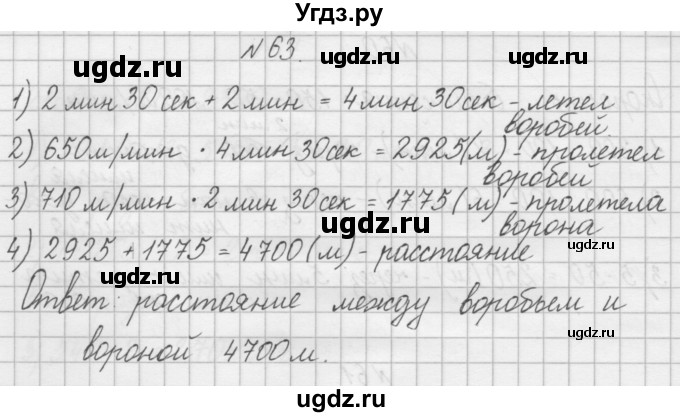 Угдз.ру
№63.
1) 2 мин 30 сек + 2 мин = 4 мин 30 сек - летел
воробей.
2) 650 м/мин · 4 мин 30 сек = 2925 (м) - пролетел
воробей
3) 710 м/мин · 2 мин 30 сек = 1775 (м) - пролетела
ворона
4) 2925 + 1775 = 4700 (м) - расстояние
Ответ: расстояние между воробьем и
вороной 4700 м.
ugdz.ru
ugdz.ru
ugdz.ru
ugdz.ru
ugdz.ru
ugdz.ru
ugdz.ru
ugdz.ru
ugdz.ru